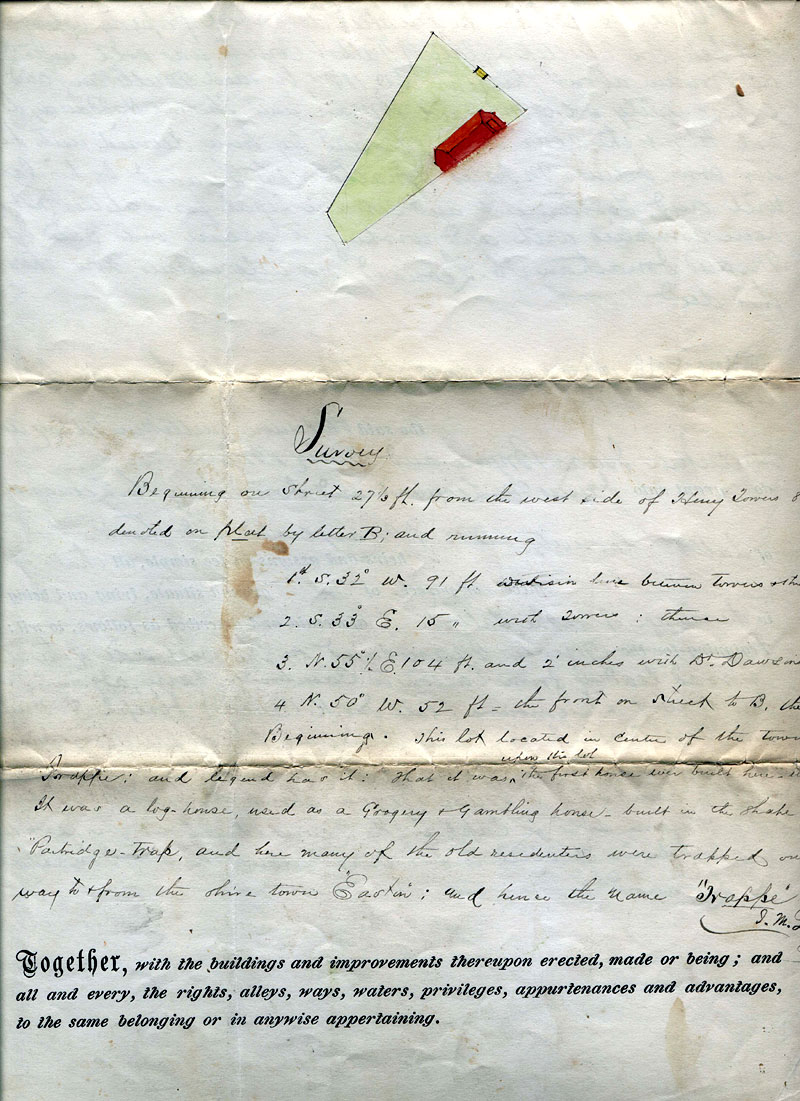 Survey
Beginning on Street 27½ ft. from the west side of Henry Towers &
denoted on plat by letter B; and running
1st S. 32° W. 91 ft division line between towers & this
2. S. 33° E. 15 " with Towers : thence
3. N. 55°½ E. 104 ft. and 2 inches with Dr. Dawson
4 N. 50° W. 52 ft = the front on Street to B, the
Beginning. This lot located in centre of the town
upon this lot
Trappe; and legend has it: that it was the first house ever built here -
It was a log-house, used as a Grogery & Gambling house - built in the Shape
"Partridge-Trap, and here many of the old residenters were trapped on
way to & from the shire town "Easton"; and hence the name "Trappe"
Together, with the buildings and improvements thereupon erected, made or being; and
all and every, the rights, alleys, ways, waters, privileges, appurtenances and advantages,
to the same belonging or in anywise appertaining.